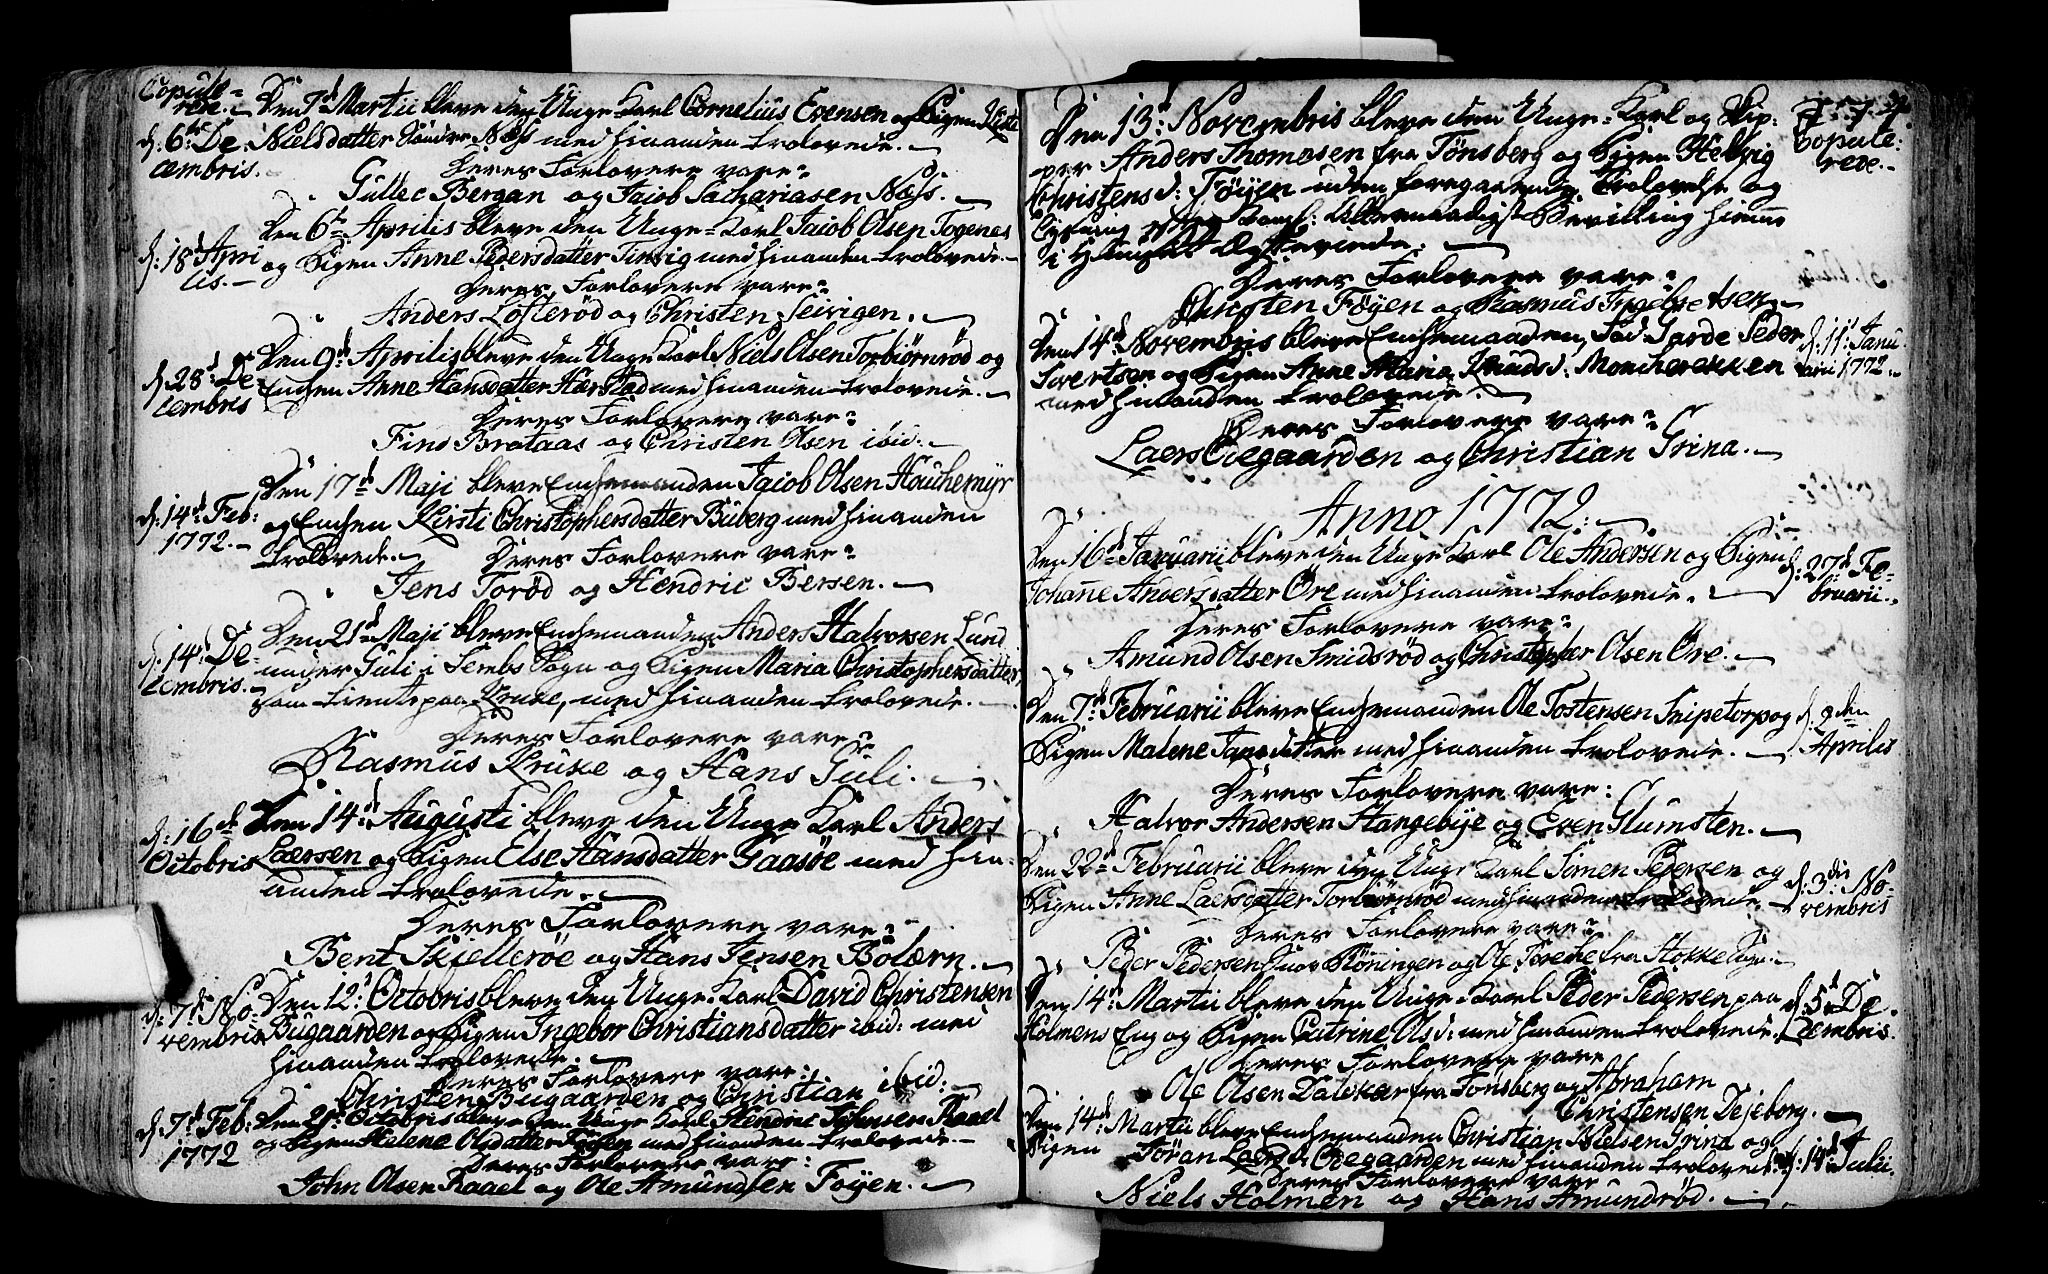 Copule=
rede.
Den 7d Martii bleve den Unge Karl Cornelius Evensen og Pigen
d. 6te De
cembris.
Nielsdatter Søndre Næss med hinanden trolovede.
Deres Forlovere vare:
Gullec Bergan og Jacob Zachariasen Næss.
d. 18d Apri
lis.
Den 6te Aprilis bleve den Unge Karl Jacob Olsen Fogenes
og Pigen Anne Pedersdatter Tinvig med hinanden trolovede.
Deres Forlovere vare:
Anders Løfterød og Christen Seivigen.
d. 28d De
cembris
Den 9d Aprilis bleve den Unge Karl Niels Olsen Torbiørnrød og
Enchen Anne Hansdatter Harstad med hinanden trolovede.
Deres Forlovere vare:
Find Brataas og Christen Olsen ibid.
d. 14d Feb:
1772.
Den 17d Maji bleve Enchemanden Jacob Olsen Houchemyr
og Enchen Kirsti Christophersdatter Buberg med hinanden
trolovede.
Deres Forlovere vare:
Jens Torød og Hendric Bersen.
d. 14d De
cembris.
Den 21d Maji bleve Enchemanden Anders Halvorsen Lund
under Guli i Sembs Sogn og Pigen Maria Christophersdatter,
som tiente paa Kruke, med hinanden trolovede.
Deres Forlovere vare:
Rasmus Kruke og Hans Guli.
d. 16de
Octobris
Den 14d Augusti bleve den Unge Karl Anders
Laersen og Pigen Else Hansdatter Gaasøe med hin=
anden trolovede.
Deres Forlovere vare:
Bent Skiellerøe og Hans Jensen Bolærn.
d. 7d No
vembris
Den 12d Octobris bleve den Unge Karl David Christensen
Bugaarden og Pigen Ingebor Christiansdatter ibid: med
hinanden trolovede.
Deres Forlovere vare:
Christen Bugaarden og Christian ibid.
d. 7d Feb:
1772
Den 21d Octobris bleve den Unge Karl Hendric Johnsen Raael
og Pigen Helene Olsdatter Føyen med hinanden trolovede.
Deres Forlovere vare:
John Olsen Raael og Ole Amundsen Føyen.
Den 13d Novembris bleve den Unge Karl og Skip=
per Anders Thomesen fra Tønsberg og Pigen Helvig
Christensd: Føyen uden foregaaende Trolovelse og
Lysning efter Kongl: Allernaadigst Bevilling hiemme
i Huuset Ægteviede.
Copule=
rede.
Deres Forlovere vare:
Christen Føyen og Rasmus Ingebretsen.
Den 14d Novembris bleve Enchemanden, Peder
Sivertsen og Pigen Anne Maria Knudsd: Moncherekken
med hinanden trolovede.
d. 11d Janu
arii 1772.
Deres Forlovere vare:
Laers Oegaarden og Christian Grina.
Anno 1772.
Den 16d Januarii bleve den Unge Karl Ole Andersen og Pigen
Johanne Andersdatter Øre med hinanden trolovede.
d. 27d Fe=
bruarii.
Deres Forlovere vare:
Amund Olsen Smidsrød og Christopher Olsen Øre.
Den 7d Februarii bleve Enchemanden Ole Tostensen Snipetorp og
Pigen Malene Jansdatter med hinanden trolovede.
d. 9den
Aprilis
Deres Forlovere vare:
Halvor Andersen Stangebye og Even Glumsten.
Den 22d Februarii bleve den Unge Karl Simen Pedersen og
Pigen Anne Laersdatter Torbiørnrød med hinanden trolovede.
d. 3die No=
vembris
Deres Forlovere vare:
Peder Pedersen Røningen og Ole fra Stokke Sogn.
Den 14d Martii bleve den Unge Karl Peder Pedersen paa
Holmens Eng og Pigen Catrine Olsd: med hinanden trolovede.
d. 5te De
cembris.
Deres Forlovere vare
Ole Olsen Dalekær fra Tønsberg og Abraham
Christensen Dejeborg.
Den 14d Martii bleve Enchemanden Christian Nielsen Grina og
Pigen Jøran Laersd: Oegaarden med hinanden trolovede.
d. 14d Julii.
Deres Forlovere vare
Niels Holmen og Hans Amundrød.